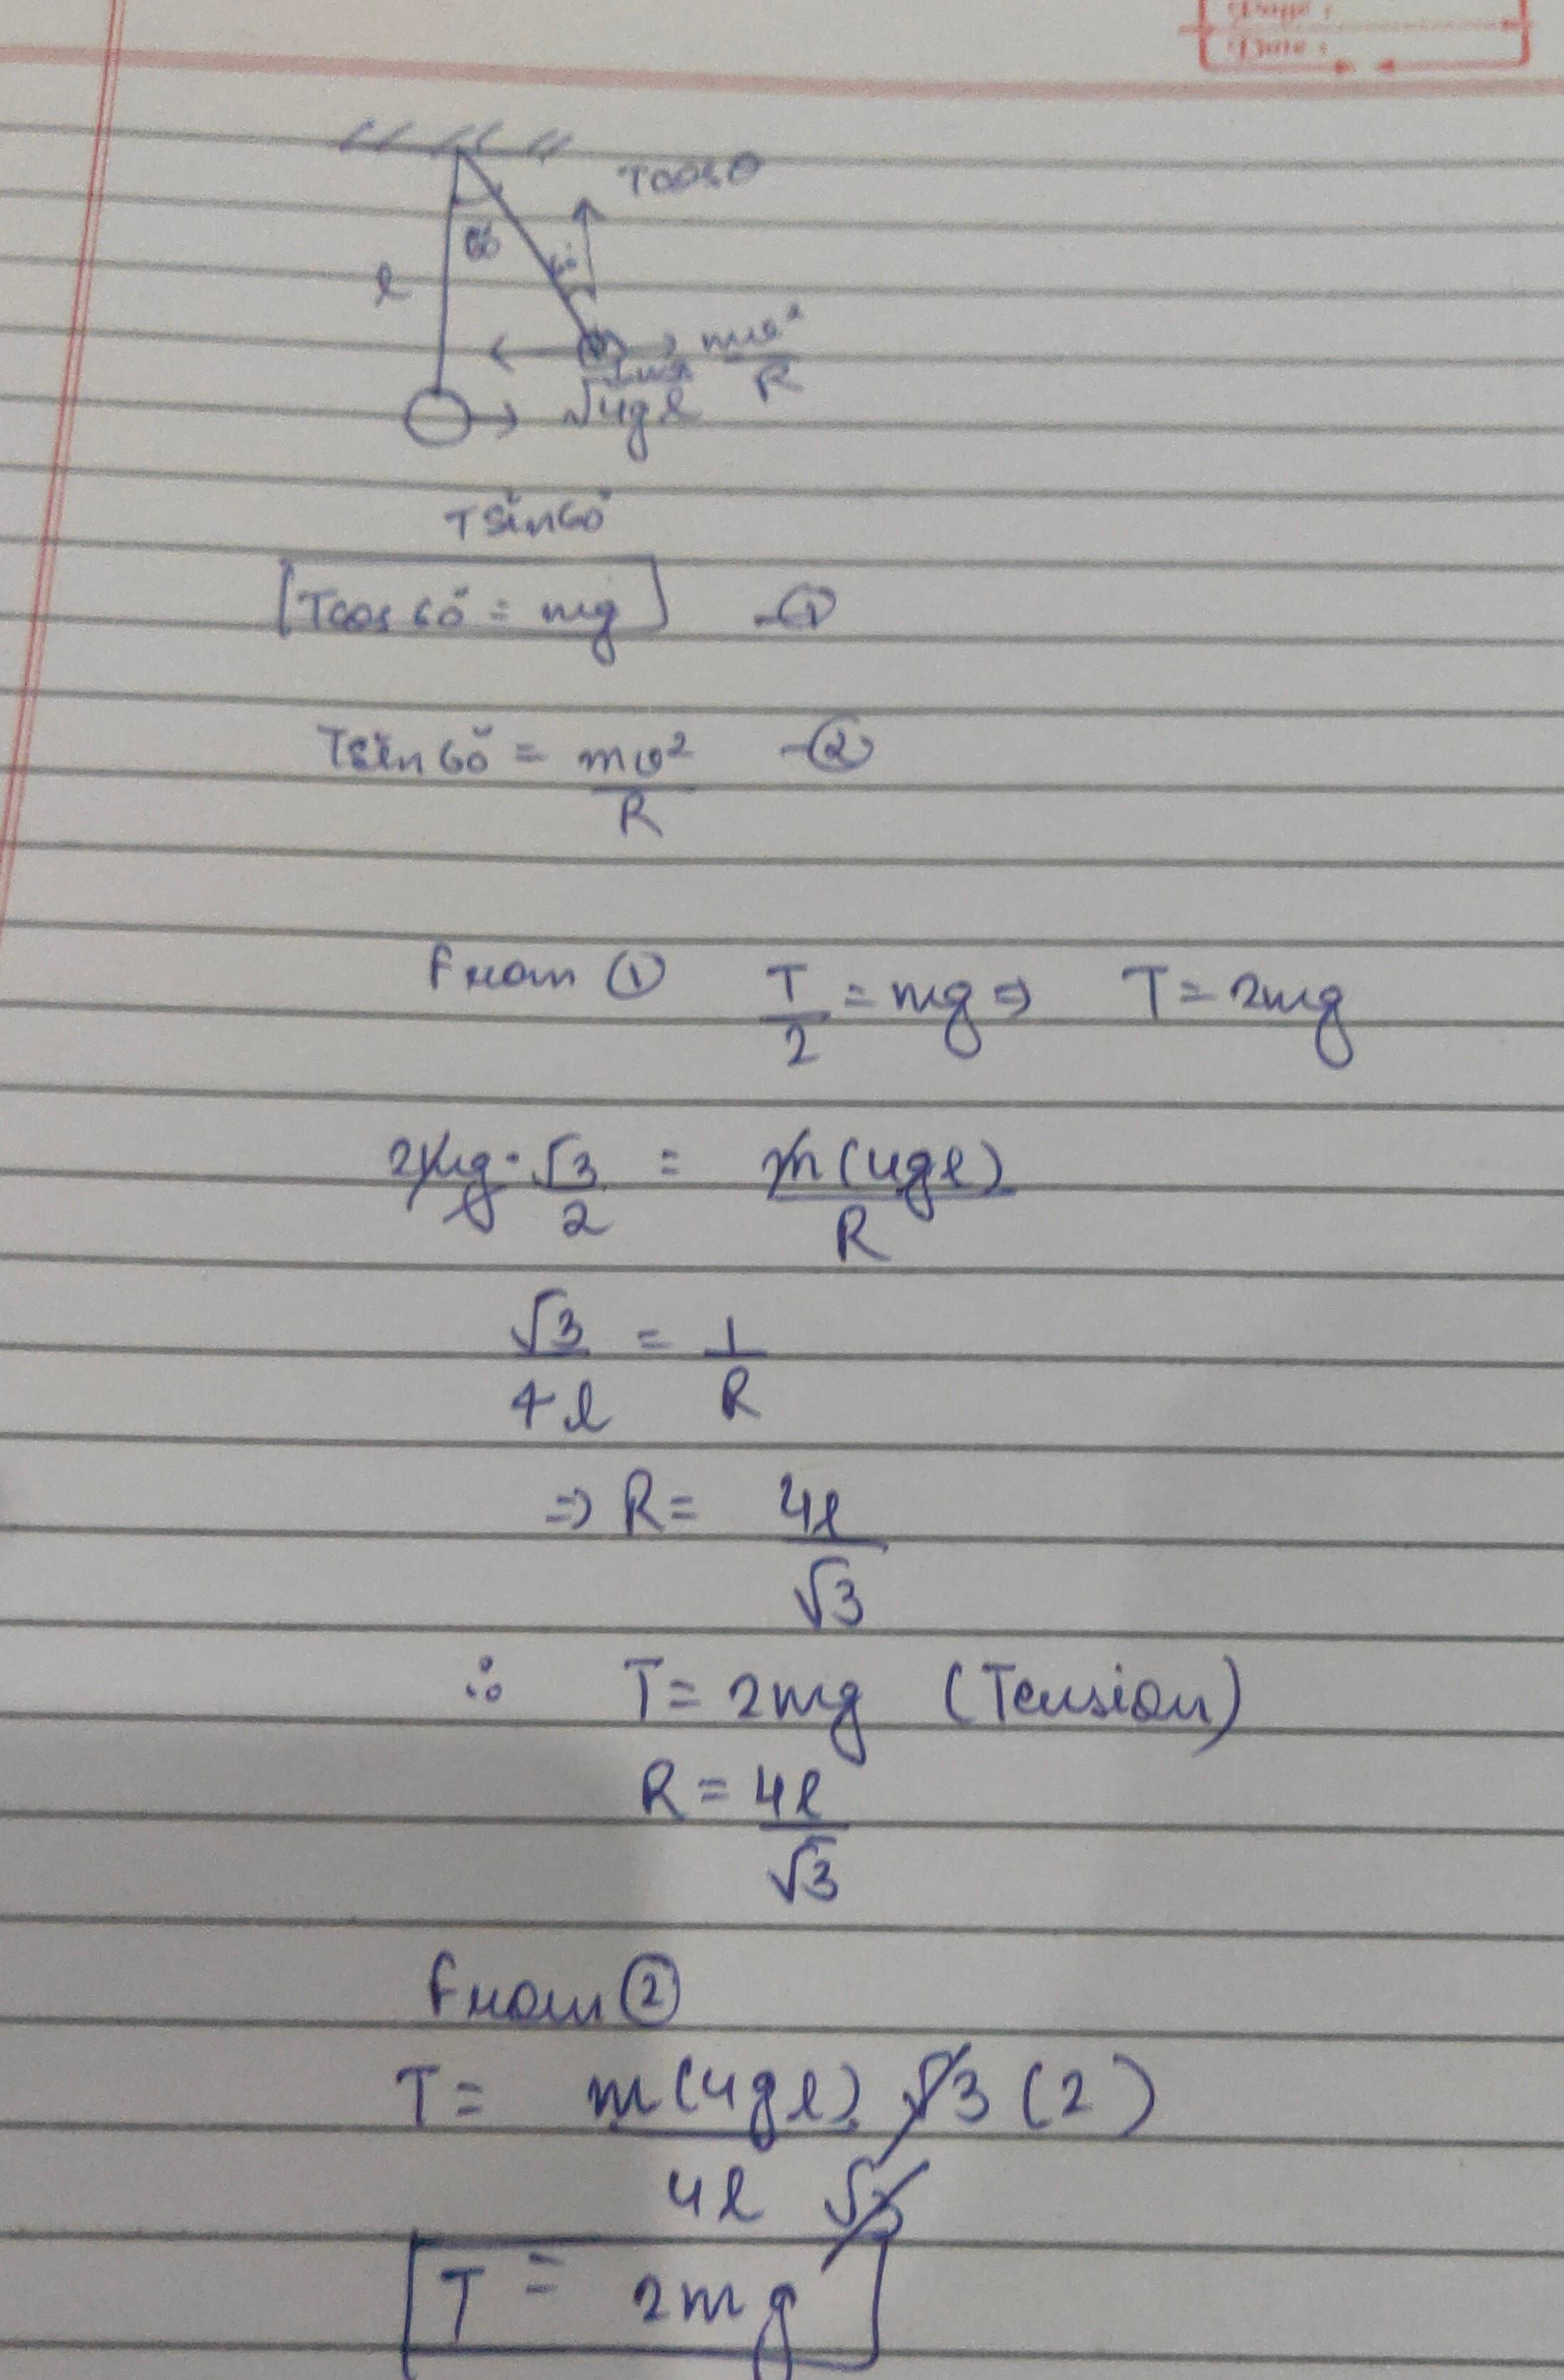 Page :
Date :
Tcosθ
60°
l
mv²/R
√4gl
Tsin60°
[Tcos60° = mg] -①
Tsin60° = mv²/R -②
From ① T/2 = mg ⇒ T = 2mg
2mg · √3/2 = m(4gl)/R
√3/4l = 1/R
⇒ R = 4l/√3
∴ T = 2mg (Tension)
R = 4l/√3
From ②
T = m(4gl) √3 (2) / 4l √3
T = 2mg